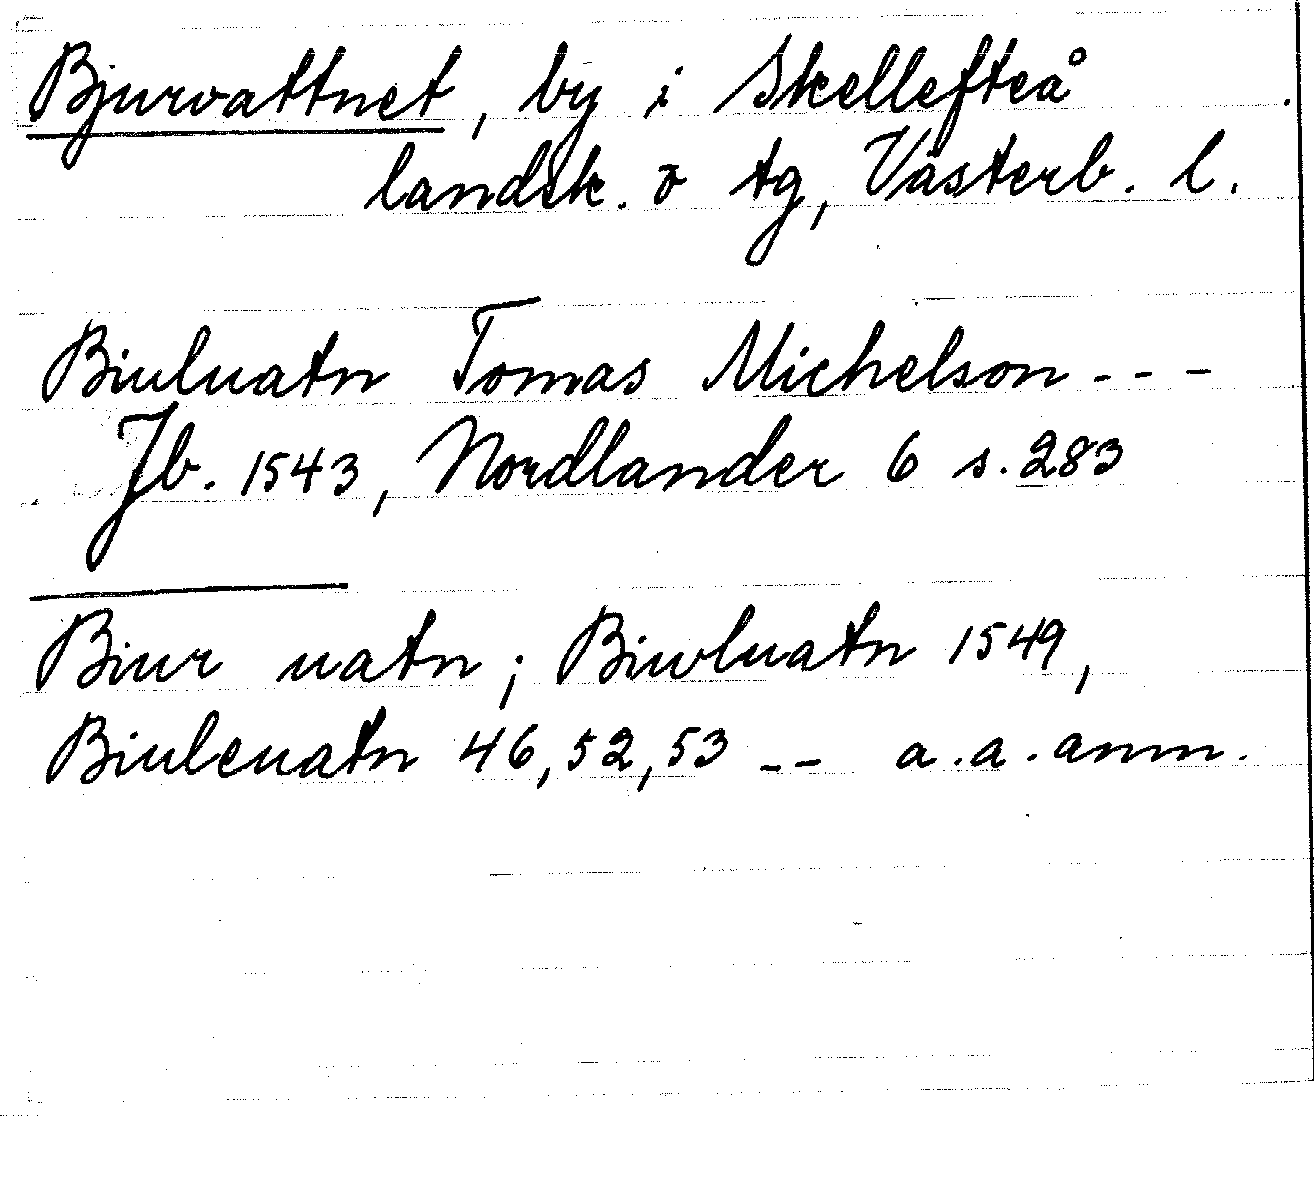 Bjurvattnet, by i Skellefteå
landsk. o tg, Västerb. l.
Biuluatn Tomas Michelson - - -
Jb. 1543, Nordlander 6 s. 283
Biur uatn; Biwluatn 1549,
Biuleuatn 46, 52, 53 -- a.a. anm.